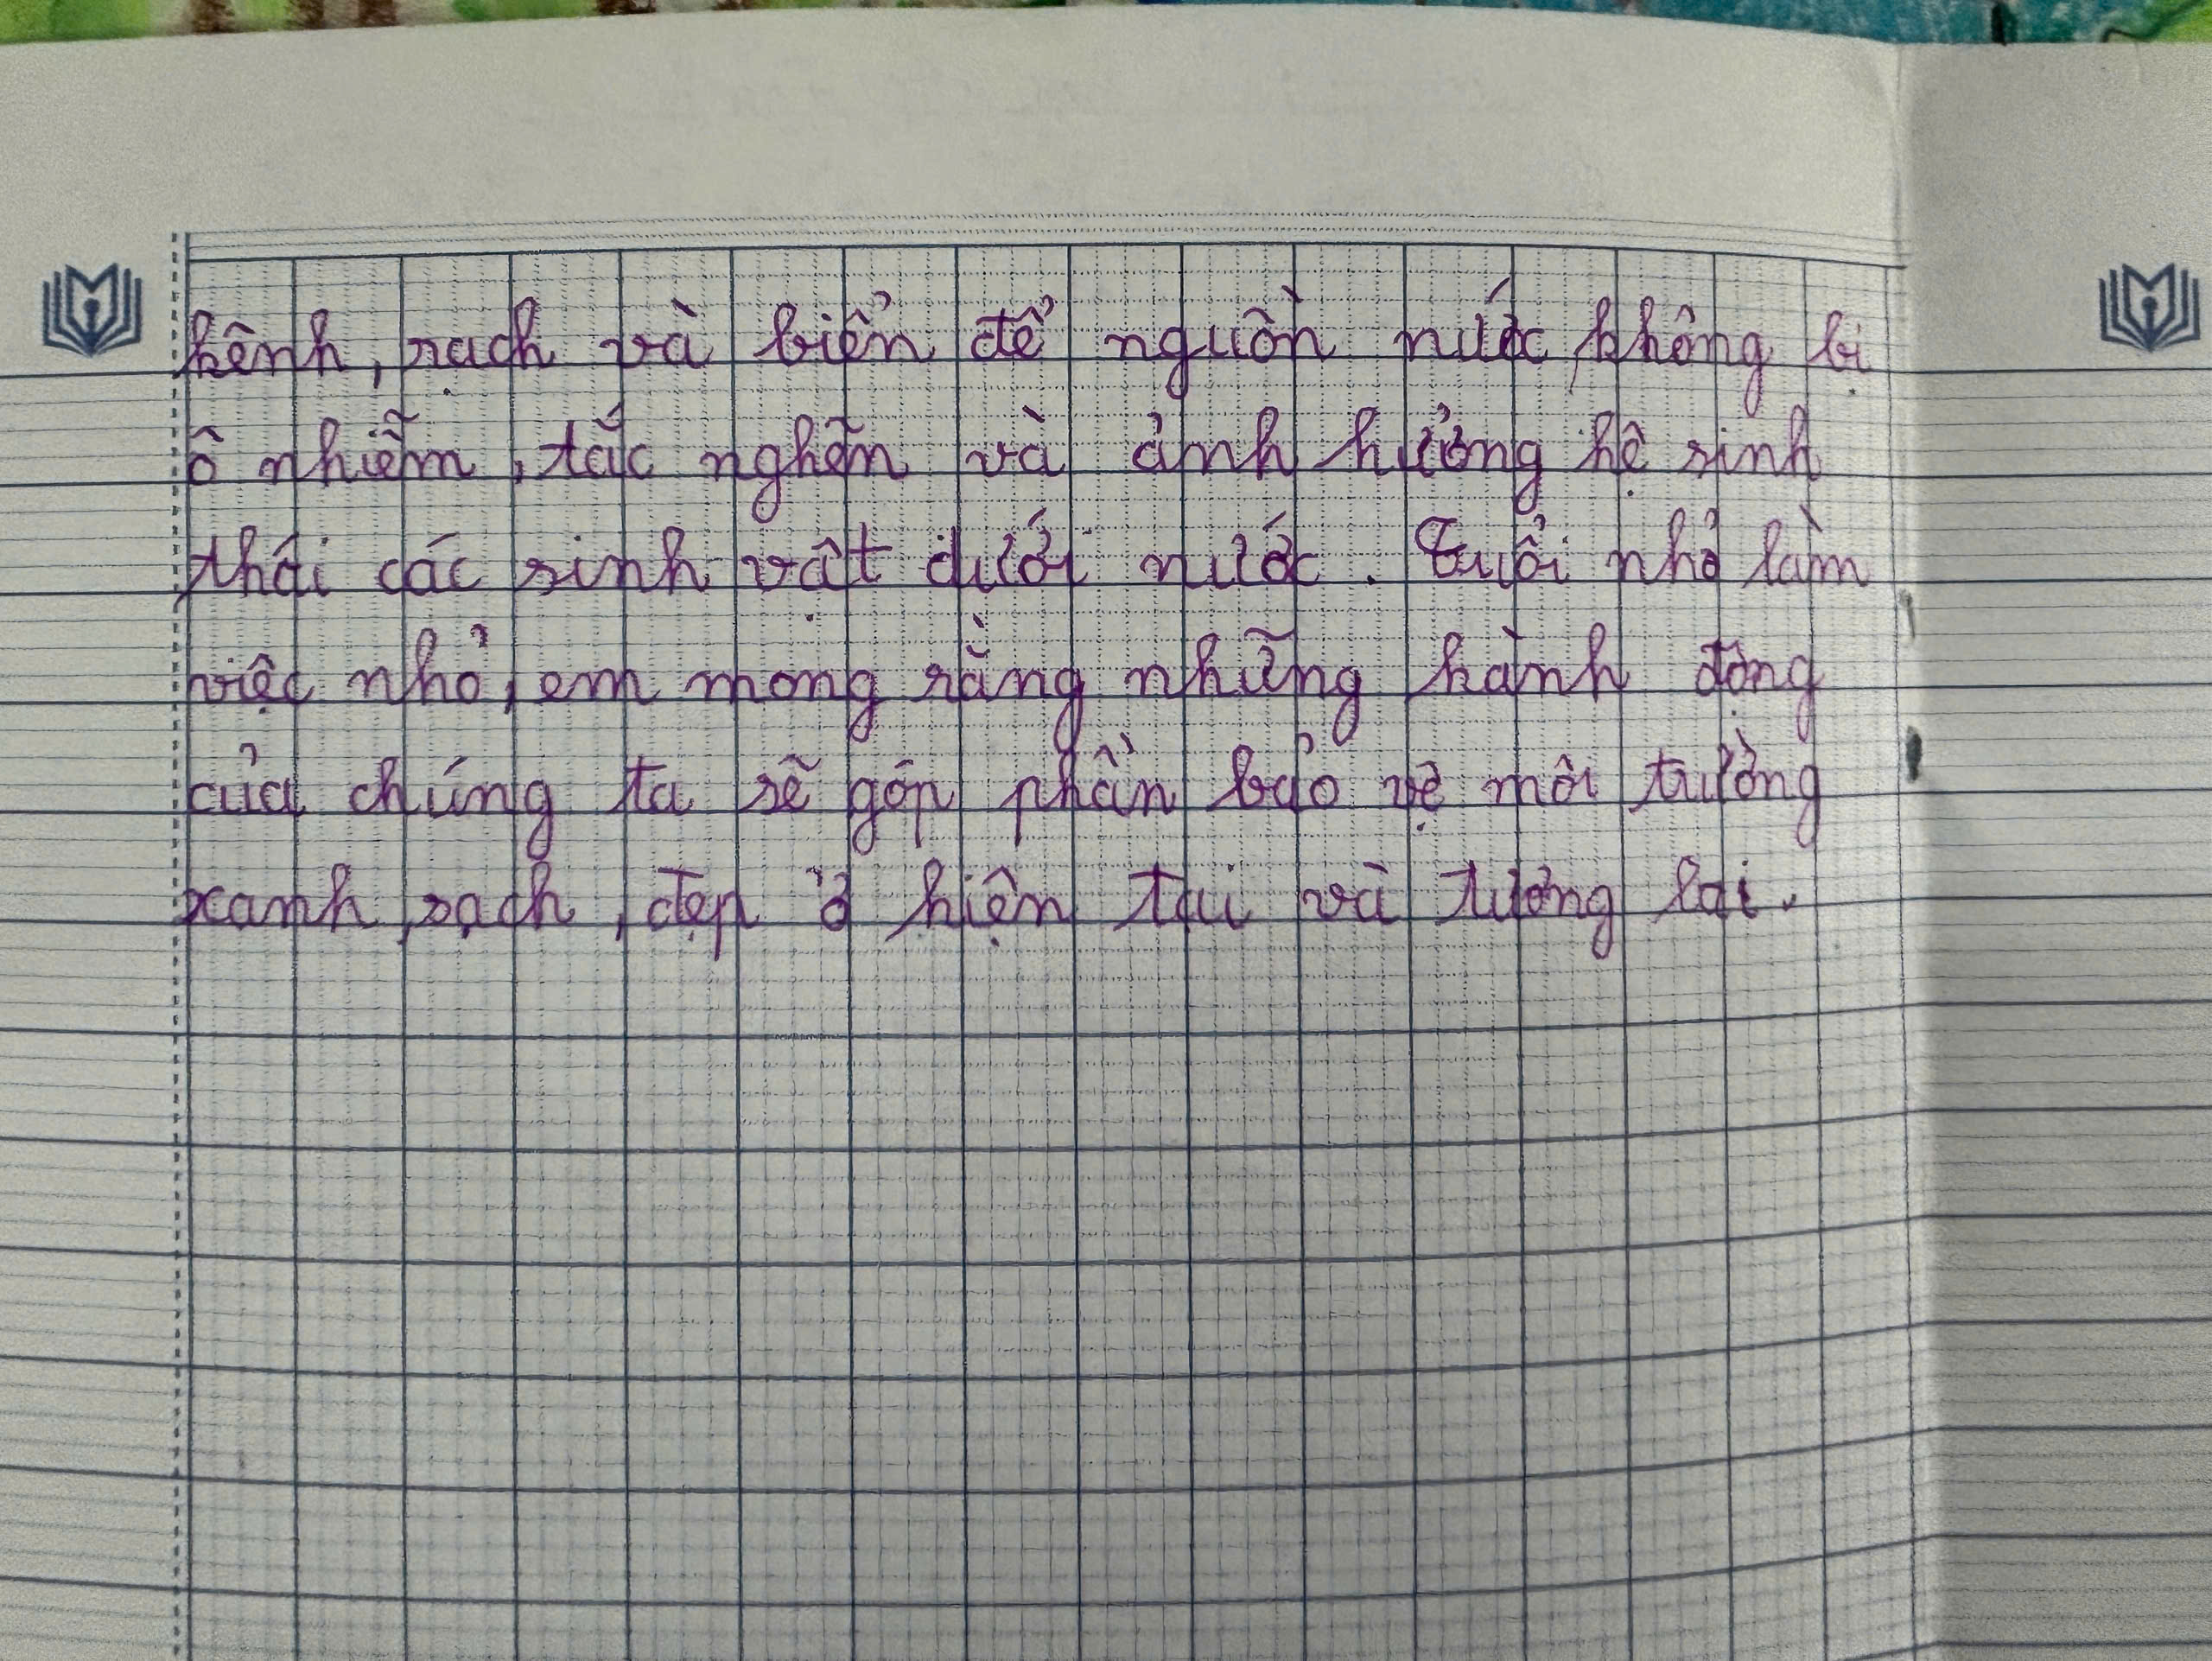 kênh, rạch và biển để nguồn nước không bị
ô nhiễm, tắc nghẽn và ảnh hưởng hệ sinh
thái các sinh vật dưới nước. Tuổi nhỏ làm
việc nhỏ, em mong rằng những hành động
của chúng ta sẽ góp phần bảo vệ môi trường
xanh, sạch, đẹp ở hiện tại và tương lai.